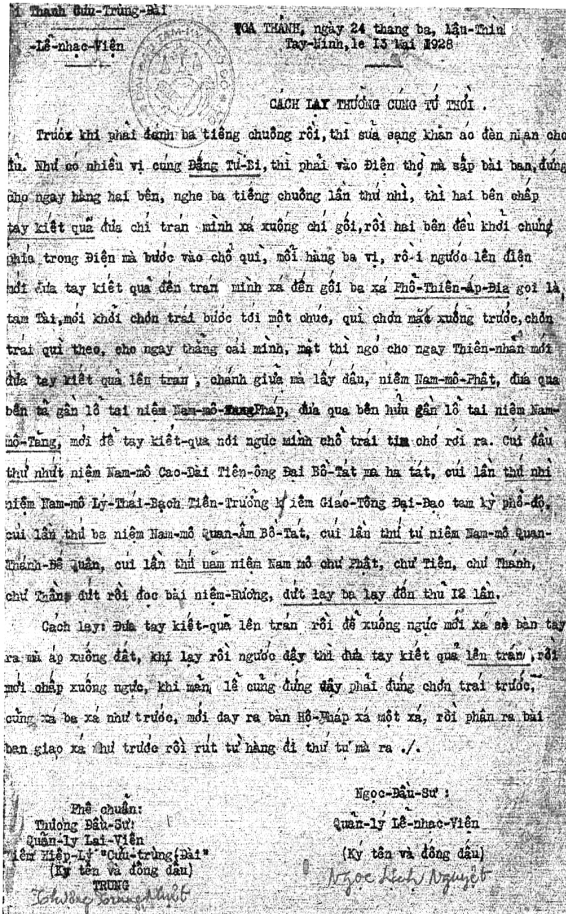 Thanh Cưu-Trùng-Đài
-Lễ-nhạc-Viên
TOA THÁNH, ngày 24 tháng ba, Mậu-Thìn
Tay-Ninh, le 13 Mai 1928
CÁCH LẠY THƯỜNG CÚNG TỨ THỜI.
Trước khi phải đánh ba tiếng chuông rồi, thì sửa sạng khăn áo đèn nhan cho
đủ. Như có nhiều vị cúng Đấng Từ-Bi, thì phải vào Điện thờ mà sắp bài ban, đứng
cho ngay hàng hai bên, nghe ba tiếng chuông lần thứ nhì, thì hai bên chấp
tay kiết quả đưa chí trán mình xá xuộng chí gối, rồi hai bên đều khởi chưng
phía trong Điện mà bước vào chổ quì, mỗi hàng ba vị, rồi ngước lên điện
mới đưa tay kiết quả đến trán mình xá đến gối ba xá Phổ-Thiên-Áp-Địa gọi là
tam Tài, mới khởi chơn trái bước tới một chúc, quì chơn mặc xuống trước, chơn
trái quì theo, cho ngay thẳng cái mình, mặt thì ngó cho ngay Thiên-nhãn mới
đưa tay kiết quả lên trán, chánh giữa mà lấy dấu, niệm Nam-mô-Phật, đưa qua
bên tả gần lổ tai niệm Nam-mô-Pháp, đưa qua bên hữu gần lổ tai niệm Nam-
mô-Tăng, mới để tay kiết-quả nơi ngực mình chổ trái tim chớ rời ra. Cúi đầu
thứ nhứt niệm Nam-mô Cao-Đài Tiên-ông Đại Bồ-Tát ma ha tát, cúi lần thứ nhì
niệm Nam-mô Lý-Thái-Bạch Tiên-Trưởng kiêm Giáo-Tông Đại-Đạo tam kỳ phổ-độ,
cúi lần thứ ba niệm Nam-mô Quan-Âm Bồ-Tát, cúi lần thứ tư niệm Nam-mô Quan-
Thánh-Đế Quân, cúi lần thứ năm niệm Nam mô chư Phật, chư Tiên, chư Thánh,
chư Thần, dứt rồi đọc bài niệm-Hương, dứt lạy ba lạy đồn thủ 12 lần.
Cách lạy: Đưa tay kiết-quả lên trán rồi để xuống ngực mới xá sè bàn tay
ra mà áp xuống đất, khi lạy rồi ngước dậy thì đưa tay kiết quả lên trán, rồi
mới chấp xuống ngực, khi mãn lễ cũng đứng dậy phải đứng chơn trái trước,
cũng xá ba xá như trước, mới day ra bàn Hộ-Pháp xá một xá, rồi phân ra bài
ban giao xá như trước rồi rút từ hàng đi thứ tự mà ra ./.
Phê chuẩn:
Thượng Đầu-Sư:
Quản-lý Lại-Viên
Kiêm Hiệp-Lý "Cửu-trùng Đài"
(Ký tên và đóng dấu)
TRUNG
Thượng Trung Nhựt
Ngọc-Đầu-Sư :
Quản-lý Lễ-nhạc-Viên
(Ký tên và đóng dấu)
Ngọc Lịch Nguyệt